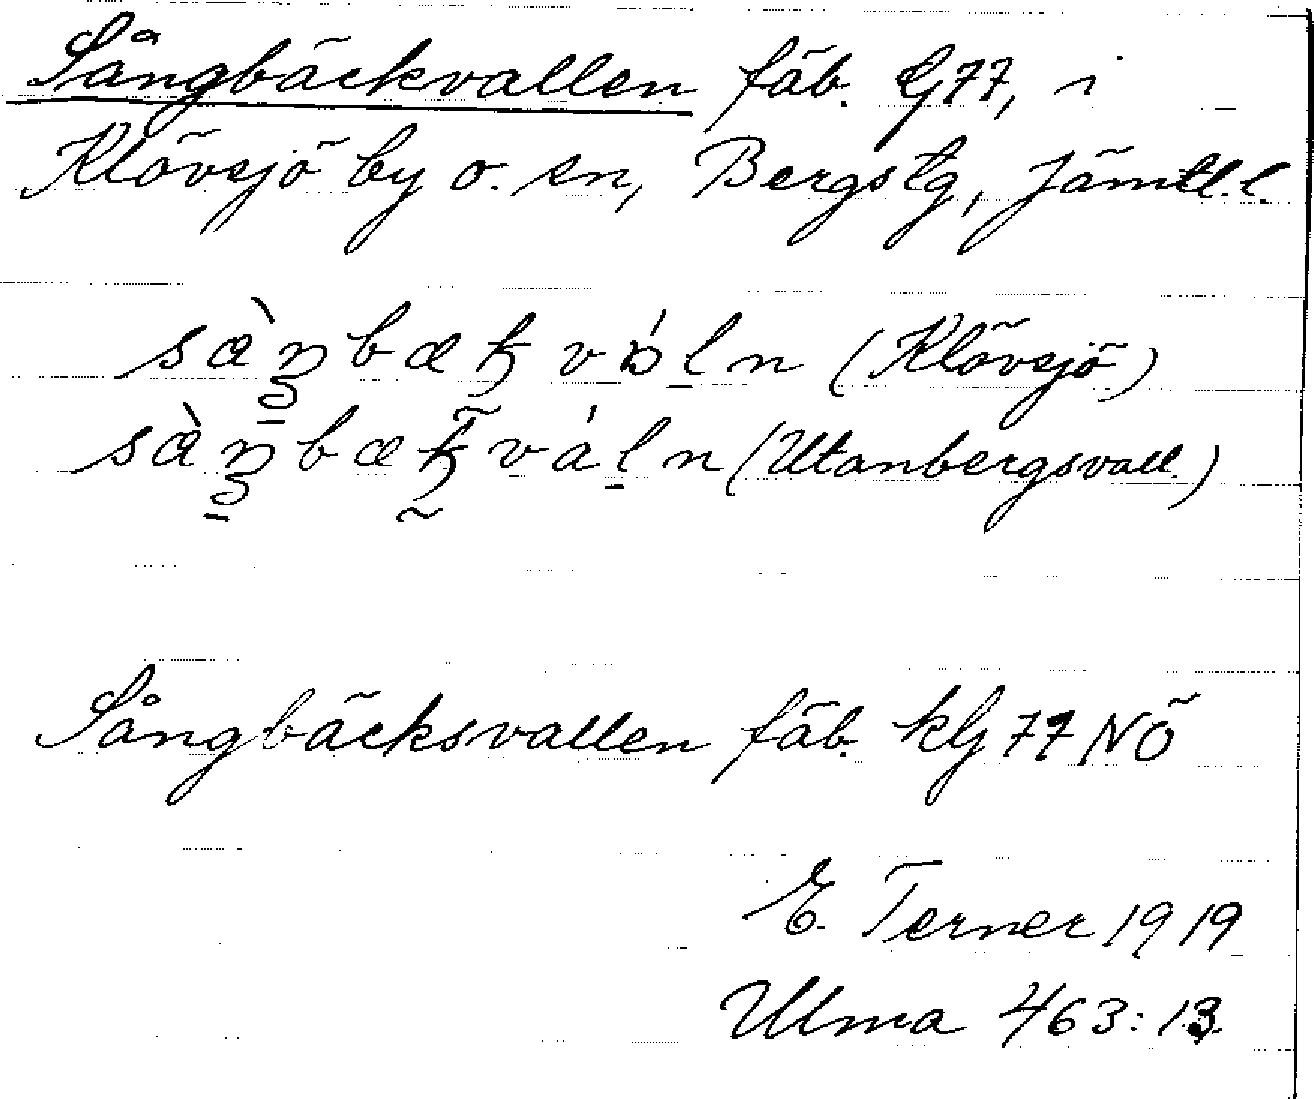 Sångbäckvallen fäb. G77, i
Klövsjö by o. sn, Bergs tg, Jämtl. l.
(Klövsjö)
(Utanbergsvall.)
Sångbäcksvallen fäb. kG 77 NÖ
E. Terner 1919
Ulma 463:13